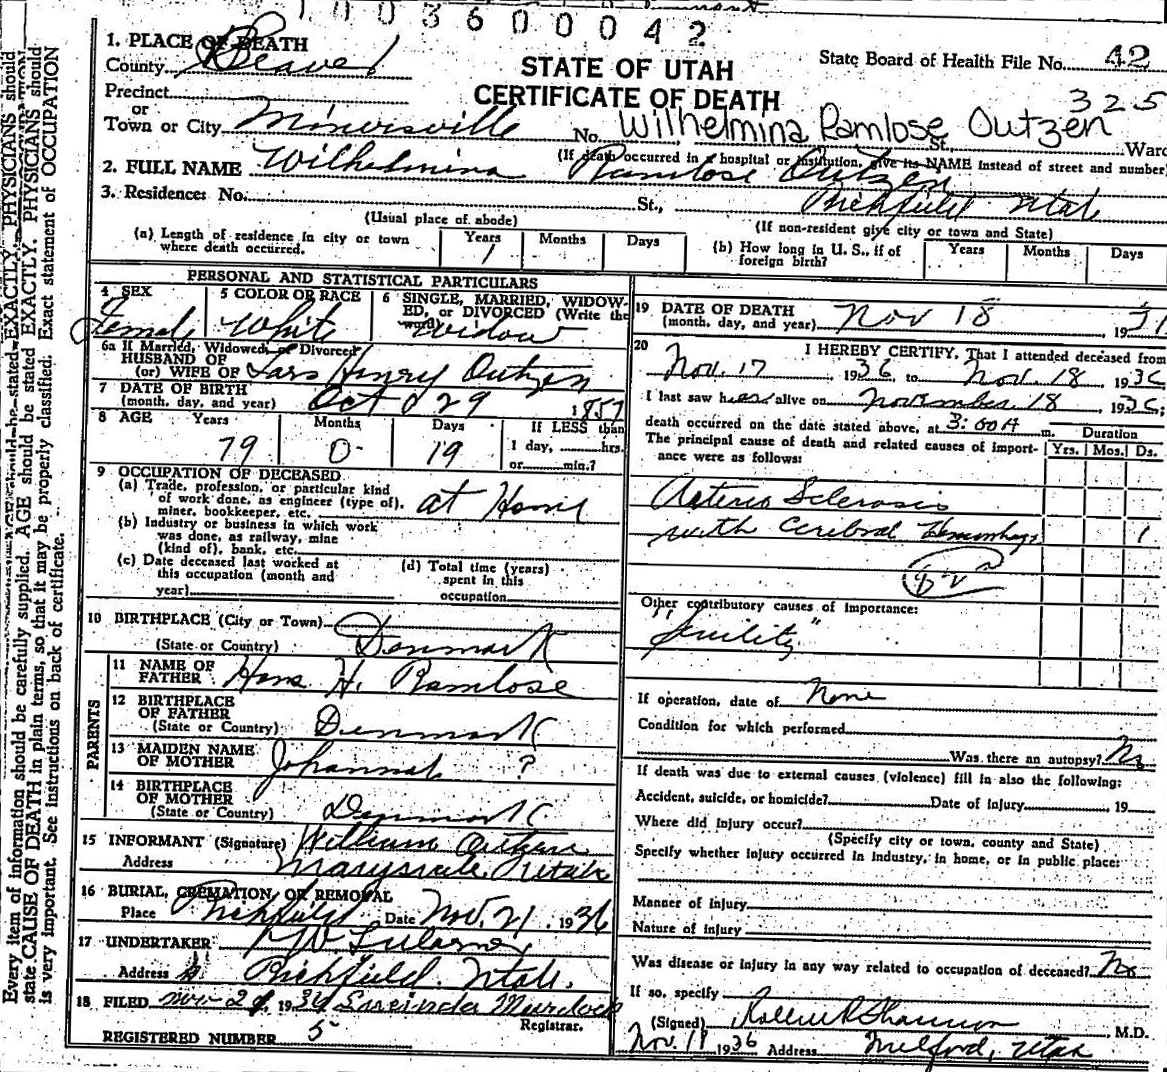 1003600042
1. PLACE OF DEATH
County Beaver
STATE OF UTAH
CERTIFICATE OF DEATH
State Board of Health File No. 42
325
Precinct
or
Town or City Minersville No. Wilhelmina Ramlose Outzen St., Ward
(If death occurred in a hospital or institution, give its NAME instead of street and number)
2. FULL NAME Wilhelmina Ramlose Outzen
3. Residence: No. St., Richfield Utah
(Usual place of abode) (If non-resident give city or town and State)
(a) Length of residence in city or town where death occurred. Years 1 Months Days
(b) How long in U. S., if of foreign birth? Years Months Days
PERSONAL AND STATISTICAL PARTICULARS
4 SEX Female
5 COLOR OR RACE White
6 SINGLE, MARRIED, WIDOWED, or DIVORCED (Write the word) Widow
6a If Married, Widowed, or Divorced
HUSBAND OF
(or) WIFE OF Lars Henry Outzen
7 DATE OF BIRTH
(month, day, and year) Oct 29 1857
8 AGE Years 79 Months 0 Days 19
If LESS than
1 day, hrs.
or min.?
9 OCCUPATION OF DECEASED
(a) Trade, profession, or particular kind
of work done, as engineer (type of),
miner, bookkeeper, etc. at Home
(b) Industry or business in which work
was done, as railway, mine
(kind of), bank, etc.
(c) Date deceased last worked at
this occupation (month and
year)
(d) Total time (years)
spent in this
occupation
10 BIRTHPLACE (City or Town)
(State or Country) Denmark
PARENTS
11 NAME OF
FATHER Hans H. Ramlose
12 BIRTHPLACE
OF FATHER
(State or Country) Denmark
13 MAIDEN NAME
OF MOTHER Johannah ?
14 BIRTHPLACE
OF MOTHER
(State or Country) Denmark
15 INFORMANT (Signature) William Outzen
Address Marysvale, Utah
16 BURIAL, CREMATION, OR REMOVAL
Place Richfield Date Nov. 21, 1936
17 UNDERTAKER
Address Richfield, Utah.
18 FILED Nov 1936 Murdock
Registrar.
REGISTERED NUMBER 5
19 DATE OF DEATH
(month, day, and year) Nov 18 19
20 I HEREBY CERTIFY, That I attended deceased from
Nov. 17, 1936, to Nov. 18, 1936
I last saw her alive on November 18, 1936;
death occurred on the date stated above, at 3:00 A m.
The principal cause of death and related causes of importance were as follows:
Duration
Yrs. Mos. Ds.
Arterio Sclerosis
with Cerebral Hemorrhage 1
Other contributory causes of importance:
"Senility"
If operation, date of None
Condition for which performed
Was there an autopsy? No
If death was due to external causes (violence) fill in also the following:
Accident, suicide, or homicide? Date of injury , 19
Where did injury occur?
(Specify city or town, county and State)
Specify whether injury occurred in industry, in home, or in public place:
Manner of injury
Nature of injury
Was disease or injury in any way related to occupation of deceased? No
If so, specify
(Signed) Shannon M.D.
Nov. 18 1936 Address Milford, Utah
Every item of information should be carefully supplied. AGE should be stated EXACTLY. PHYSICIANS should
state CAUSE OF DEATH in plain terms, so that it may be properly classified. Exact statement of OCCUPATION
is very important. See instructions on back of certificate.